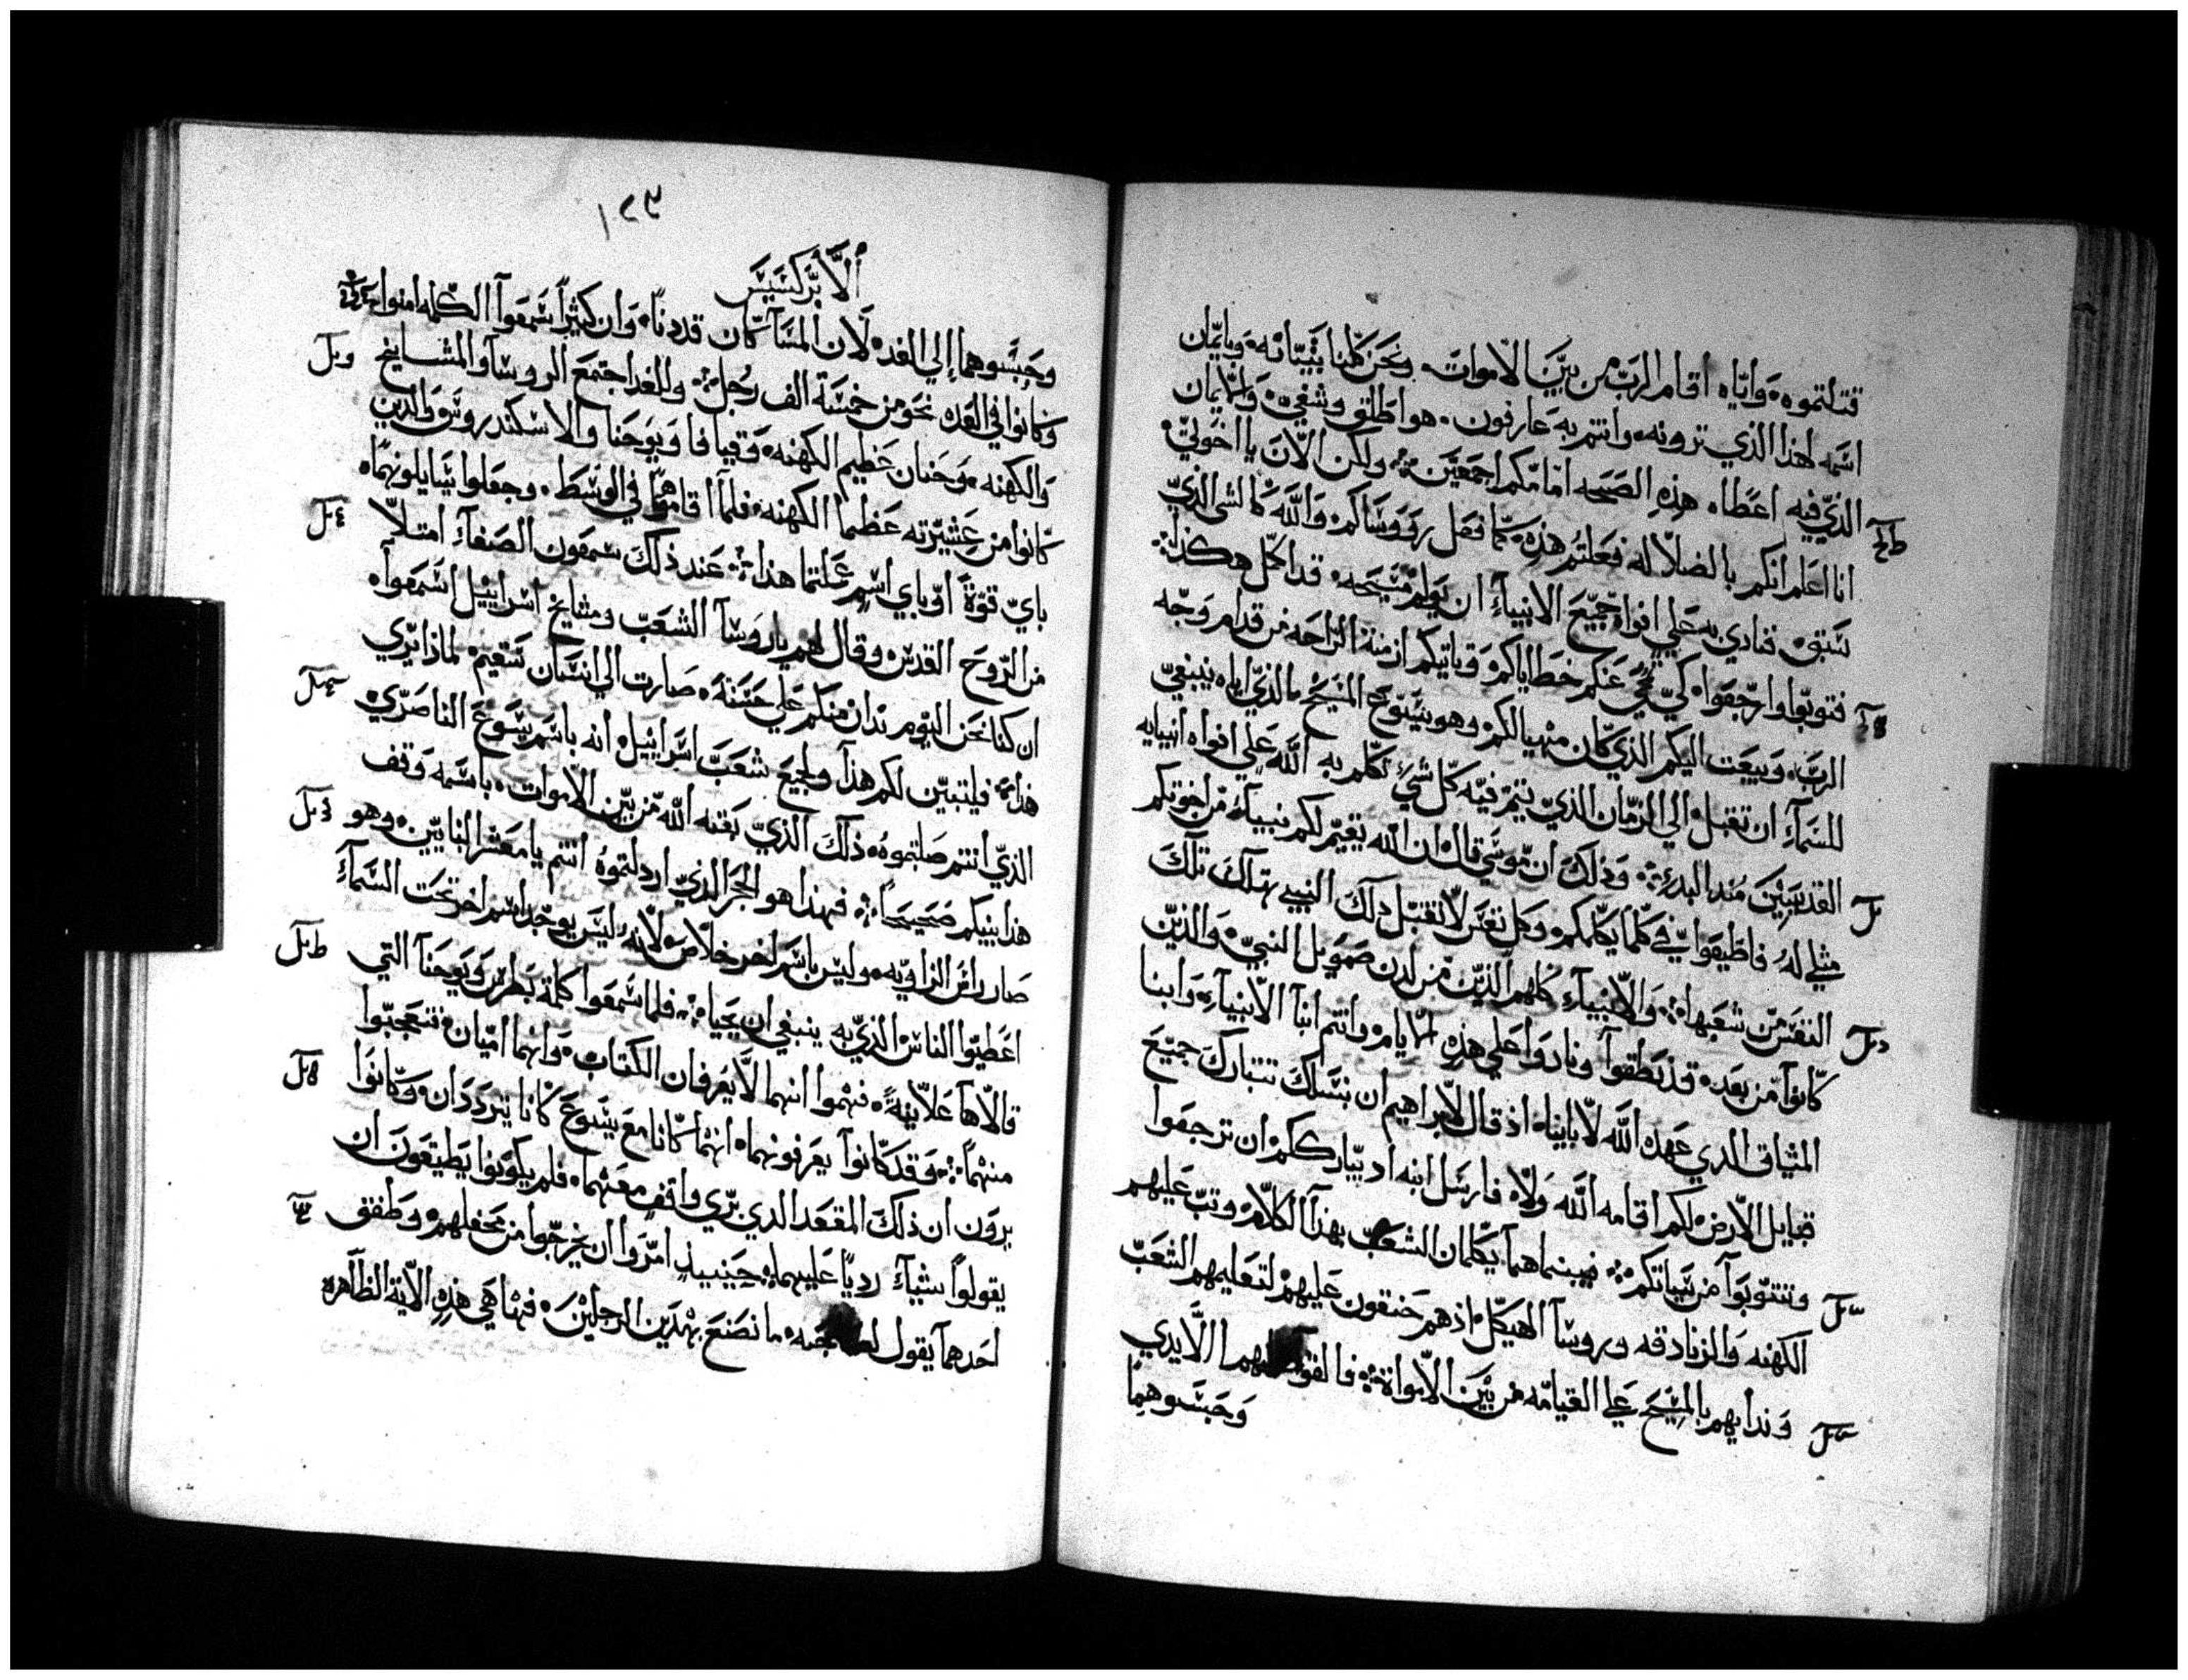 قتلتموه وَايّاه اقام الربّ من بيَّن الاموات. ونحن كلنا بثباته وبايمان
اسَمه هذا الذي ترونه وانتم به عارفون. هو اطلق وشفي. وَالايمان
الذيّ فيه اعطاه هذه الصَحه امامكم اجمعين ولكن الانَ يا اخوتيّ
انا اعلم انكم بالضلالة فعَلتم هذه كما فعل روَوسَاكم وَاللَّه كالشي الذيّ
سَبق فنادي به عَلي افواه جميّع الانبيآء ان يولم مسَيحه. قد اكمل هكذا
فتوبّوا وارّجعَوا كيّ تمحي عَنكم خطاياكم وَياتيكم ازمنة الراحَه من قدام وَجّه
الربَّ. وَيبعَث اليكم الذي كان متهيا لكم وهو يسَوّع المسَيح الذيّ اياه ينبغيّ
للسَمآء ان تقبل الي الزمان الذيّ يتم فيّه كلّ شيّ تكلّم به اللَّه عَلي افواه انبيايه
القديسَيين مُند البدء وَذلكَ ان موسَي قال ان اللّه يقيّم لكم نبيآء من اخوتكم
مثلي لهُ فاطَيعَوا في كلما يكلمكم وَكل نفسَ لا تقبل ذلك النبي تهلك تلكَ
النفسَ من شعَبها وَالانبيآء كلهم الذيّن من لدن صمويل النبيّ وَالذيّن
كانوا من بعَده قد نطقوا ونادوَا علي هذه الايام وانتم ابنآ الانبيآء وَابنا
الميثاق الدي عَهده اللَّه لابايناه اذ قال لابراهيم ان بنسَلكَ تتباركَ جميّعَ
قبايل الارض لكم اقامه اللَّه وَلاه فارسَل ابنه اد يبّارككم ان ترجعَوا
وتتوّبوَا من سَيياتكم فيبنما هما يكلمان الشعَب بهذا الكلام وتبّ عَليهم
الكهنه وَالزنادقه وروسَآ الهيكل اذهم حَنقون عَليهم لتعَليمهم الشعَبّ
وَندايهم بالمسَيح عَلي القيامّه من بيّن الامواة فالقوا عليهما الايدي
وَحَبسَوهما
١٢٣
اَلاَبّركسَيسَ
وحَبسَوهما إلي الغد لان المسَآ كان قد دنا. وَان كثيرًا سَمعَوا الكلمه امنوا
وَكانوا في العَده نحَو من خمسَة الف رُجل وَللغد اجتمعَ الروسَا والمشايخ
وَالكهنه وحَنان عَظيم الكهنه وَقيافا وَيوَحَنا والاسكندروسَ وَالدين
كانوا من عَشيّرته عَظما الكهنه. فلما اقاموهما في الوسَط. وجعَلوا يسَايلونهما
بايّ قوّة أوّ باي اسَمٍ عَملتما هذا عَند ذلك سَمعَون الصَفآء امتلا
من الرّوحَ القدسَ وقال لهم ياروَسَآ الشعَبّ ومشايخ اسَراييل اسَمعَوا
ان كنا نحَن اليوم ندان منكم عَلي حَسَنة صارت الي انسَان سَقيم لماذا بري
هذا فليتبيّن لكم هذا ولجميعَ شعَبَ اسَراييل انه باسَم يسَوعَ الناصَرّي
الذيّ انتم صَلبتموهُ ذلكَ الذيّ بعَته اللَّه من بيّن الاموات. باسَمه وَقف
هذا بينكم صَحيحَاً فهذا هو الحَجر الذيّ ارذلتموه انتم يا معَشر البنايين. وهو
صَار راس الزاويه وليس باسَم اخر خلاص لانه ليسَ يوجد اسَم اخر تحَت السَمآء
اعَطيّوا الناس الذيّ به ينبغي ان يحَيا فلما سَمعَوا كلمة بَطرسَ وَيوحَنا التي
قالاها عَلانيةً فهموا انهما لا يعَرفان الكتاب وَانهما اميّان فتعَجبّوا
منهما وَقد كانوا يعَرفونهما انهما كانا معَ يسَوعَ كانا يترددان وَكانوا
يروَن ان ذلكَ المقعَد الدي بري واقف معَهما فلم يكونوا يطَيقون ان
يقولوا شيآء رديّاً عَليهما حَينيذ امرّوا ان يخرجّوا من محَفلهم وَطَفق
احَدهما يقول ما نصَنعَ بهدَين الرجلينَ فها هي هذه الاية الظَاهره